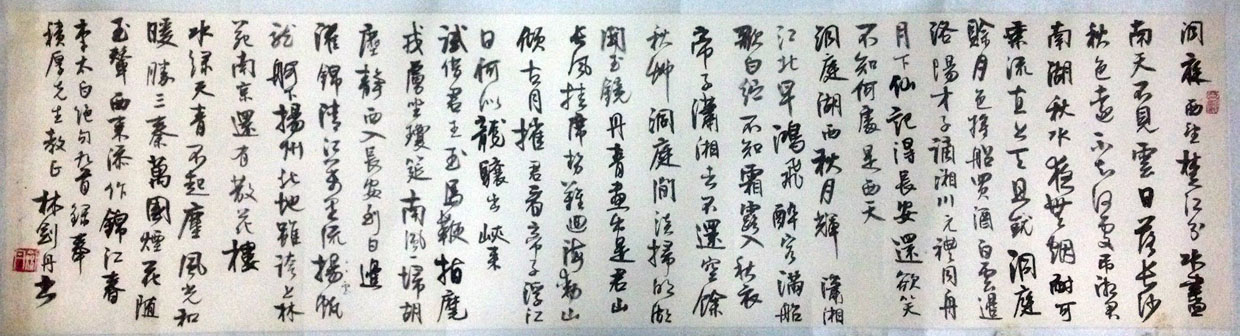 洞庭西望楚江分水盡
南天不見雲日落長沙
秋色遠不知何處吊湘君
南湖秋水夜無烟耐可
乘流直上天且就洞庭
賒月色將船買酒白雲邊
洛陽才子謫湘川元禮同舟
月下仙記得長安還欲笑
不知何處是西天
洞庭湖西秋月輝瀟湘
江北早鴻飛醉客滿船
歌白紵不知霜露入秋衣
帝子瀟湘去不還空餘
秋草洞庭間淡掃明湖
開玉鏡丹青畫出是君山
長風挂席勢難迴海動山
傾古月摧君看帝子浮江
日何似龍驤出峽來
試借君王玉馬鞭指麾
戎虜坐瓊筵南風一掃胡
塵靜西入長安到日邊
濯錦清江萬里流揚帆
龍舸下揚州北地雖誇上林
苑南京還有散花樓
水綠天青不起塵風光和
暖勝三秦萬國煙花隨
玉輦西來添作錦江春
李太白絕句九首錄奉
積厚先生教正 林劍丹書